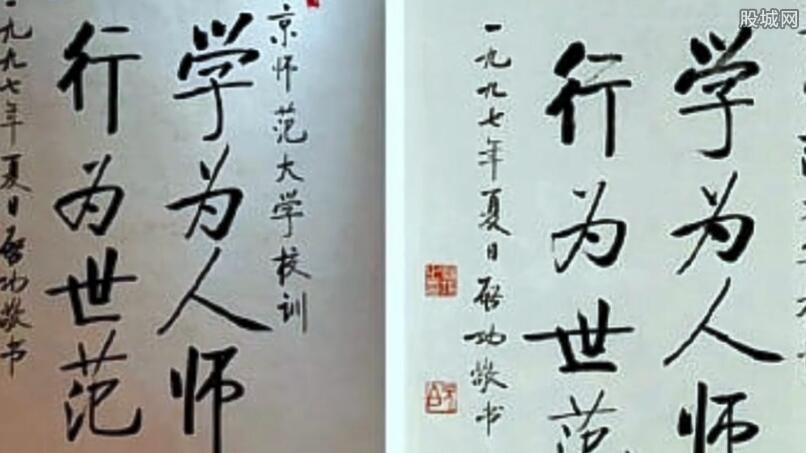 京师范大学校训
学为人师
行为世范
一九九七年夏日启功敬书
股城网
学为人师
行为世范
一九九七年夏日启功敬书